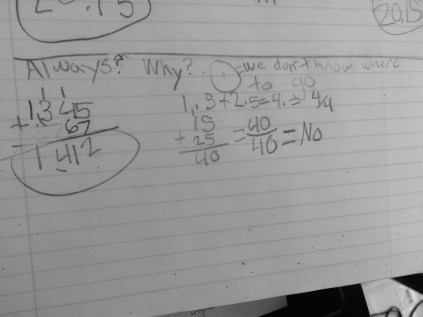 20.15
Always? Why? ⊙ = we don't know where
to go
1 1
1,345
+ 67
1 412
1.5+2.5=4.= 4/4
15
+ 25
40
= 40/40 = No